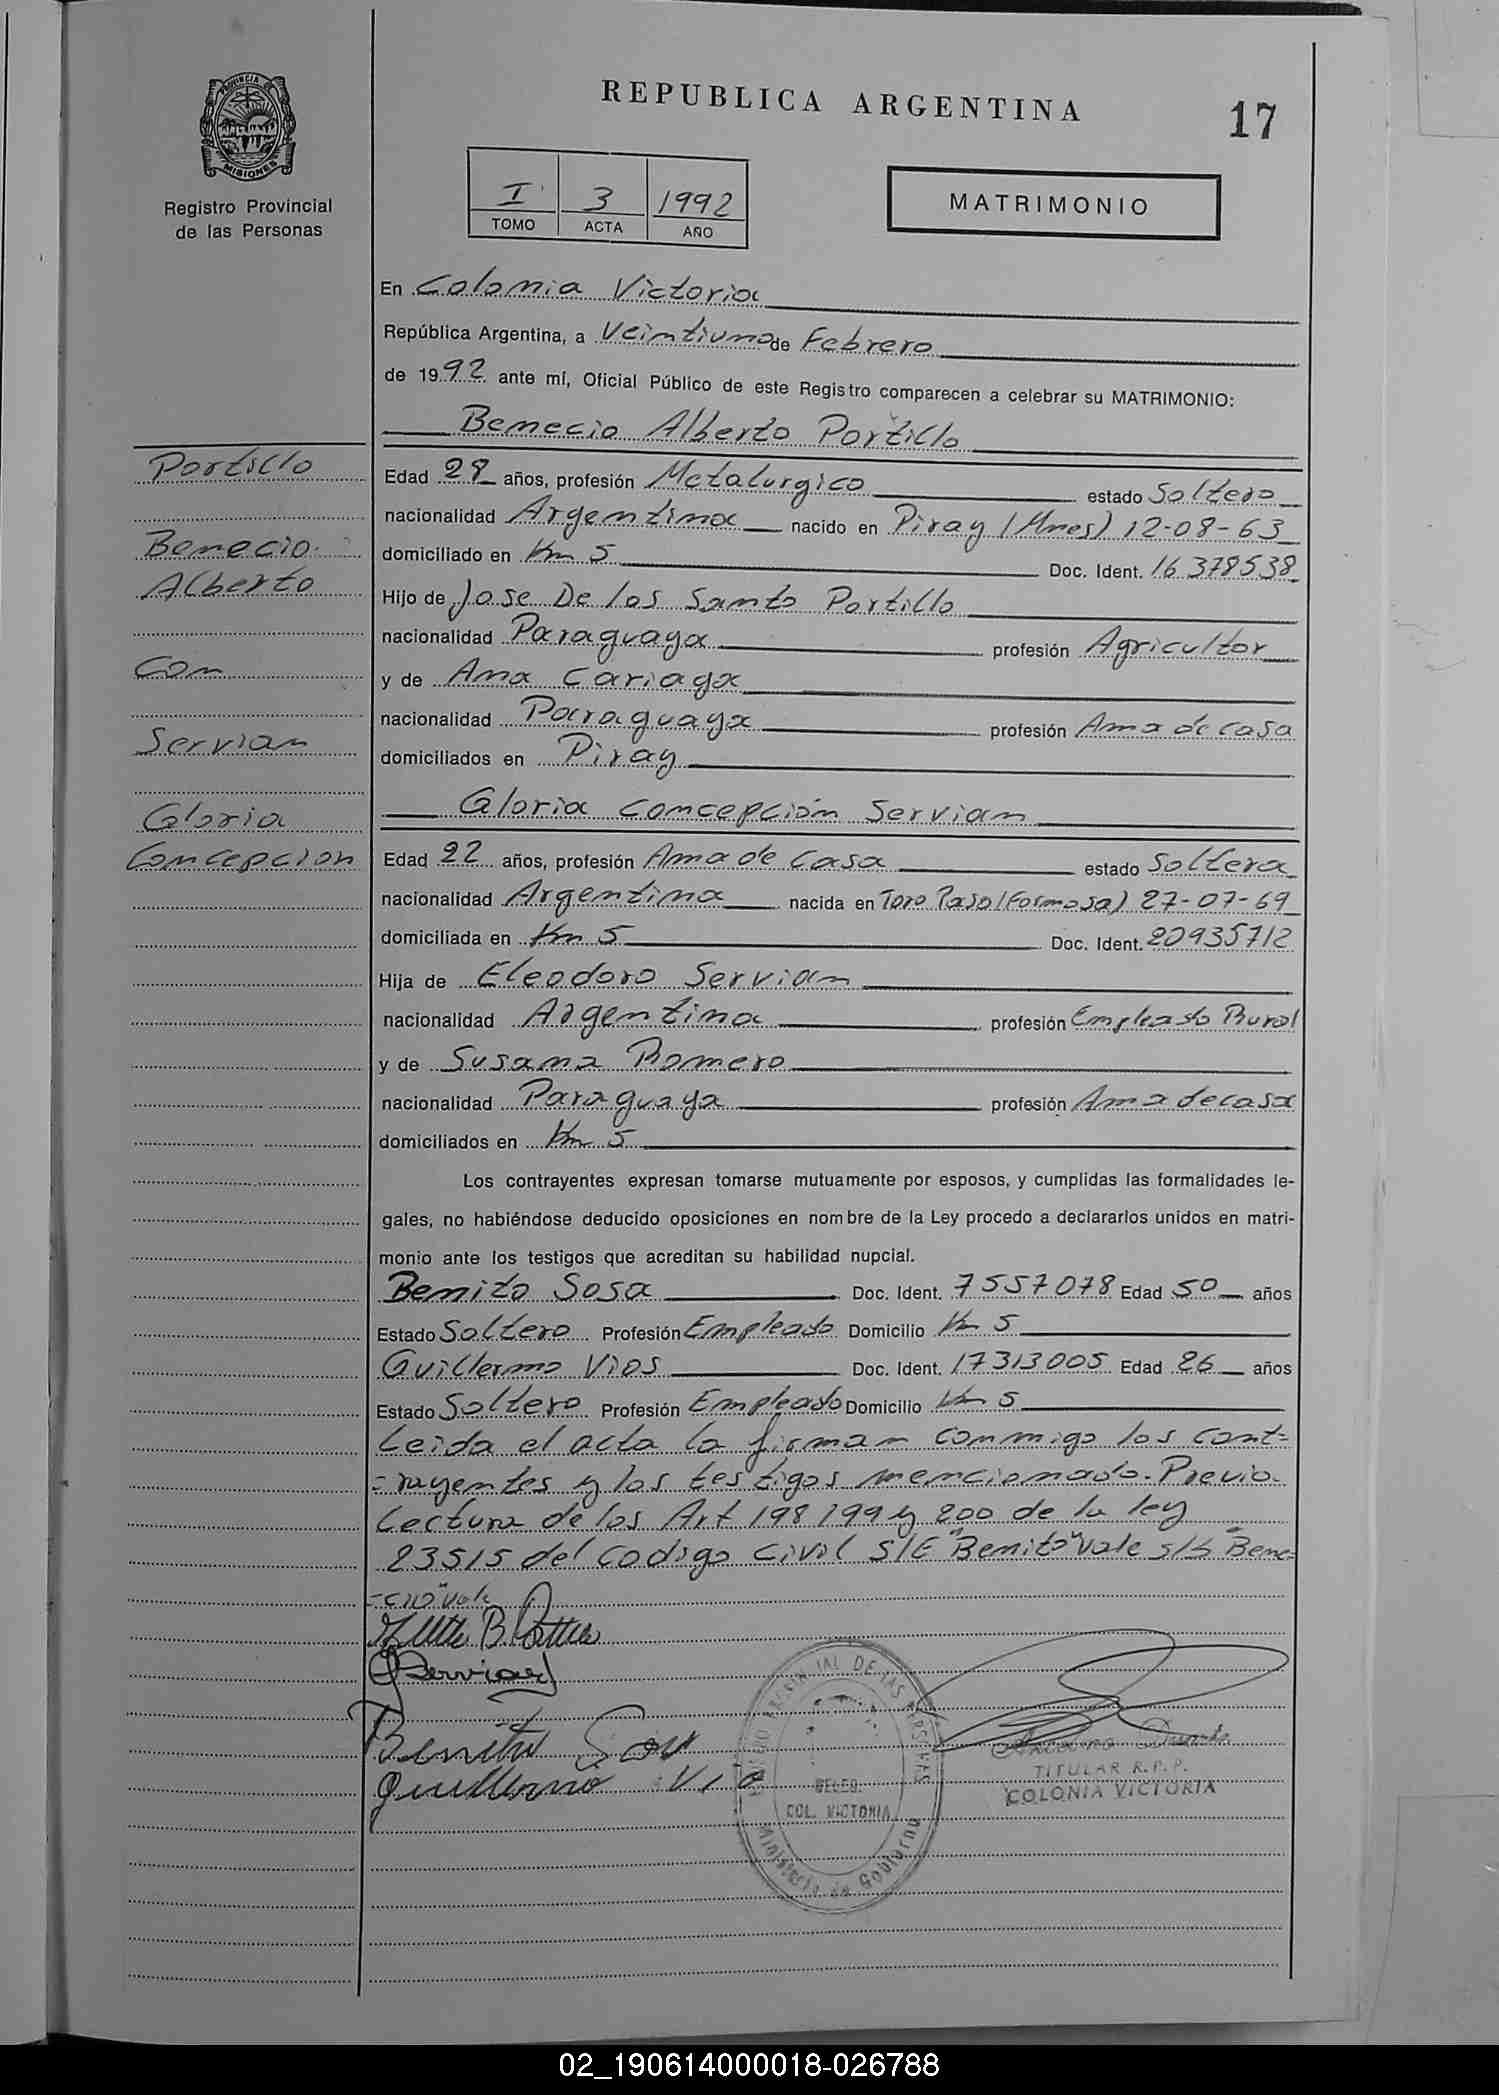 REPUBLICA ARGENTINA
17
PROVINCIA
MISIONES
Registro Provincial
de las Personas
I 3 1992
TOMO ACTA AÑO
MATRIMONIO
En Colonia Victoria
República Argentina, a Veintiuno de Febrero
de 1992 ante mí, Oficial Público de este Registro comparecen a celebrar su MATRIMONIO:
Benecio Alberto Portillo
Portillo
Benecio
Alberto
con
Servian
Gloria
Concepcion
Edad 28 años, profesión Metalurgico estado Soltero
nacionalidad Argentina nacido en Piray (Mnes) 12-08-63
domiciliado en Km 5 Doc. Ident. 16 378538
Hijo de Jose De los Santo Portillo
nacionalidad Paraguaya profesión Agricultor
y de Ana Cariaga
nacionalidad Paraguaya profesión Ama de casa
domiciliados en Piray
Gloria Concepción Servian
Edad 22 años, profesión Ama de Casa estado Soltera
nacionalidad Argentina nacida en Toro Paso (Formosa) 27-07-69
domiciliada en Km 5 Doc. Ident. 20935712
Hija de Eleodoro Servian
nacionalidad Argentina profesión Empleado Rural
y de Susana Romero
nacionalidad Paraguaya profesión Ama de casa
domiciliados en Km 5
Los contrayentes expresan tomarse mutuamente por esposos, y cumplidas las formalidades le-
gales, no habiéndose deducido oposiciones en nombre de la Ley procedo a declararlos unidos en matri-
monio ante los testigos que acreditan su habilidad nupcial.
Benito Sosa Doc. Ident. 7557078 Edad 50 años
Estado Soltero Profesión Empleado Domicilio Km 5
Guillermo Vios Doc. Ident. 17313005 Edad 26 años
Estado Soltero Profesión Empleado Domicilio Km 5
Leida el acta la firman conmigo los cont=
=rayentes y los testigos mencionado. Previo
Lectura de los Art 198 199 y 200 de la ley
23515 del Codigo Civil S/E "Benito" vale s/b "Bene=
=cio" vale
B.
Servian
Benito Sosa
Guillermo Vio
PROVINCIAL DE LAS PERSONAS
DELEG.
COL. VICTORIA
Ministerio de Gobierno
TITULAR R.P.P.
COLONIA VICTORIA
02_190614000018-026788